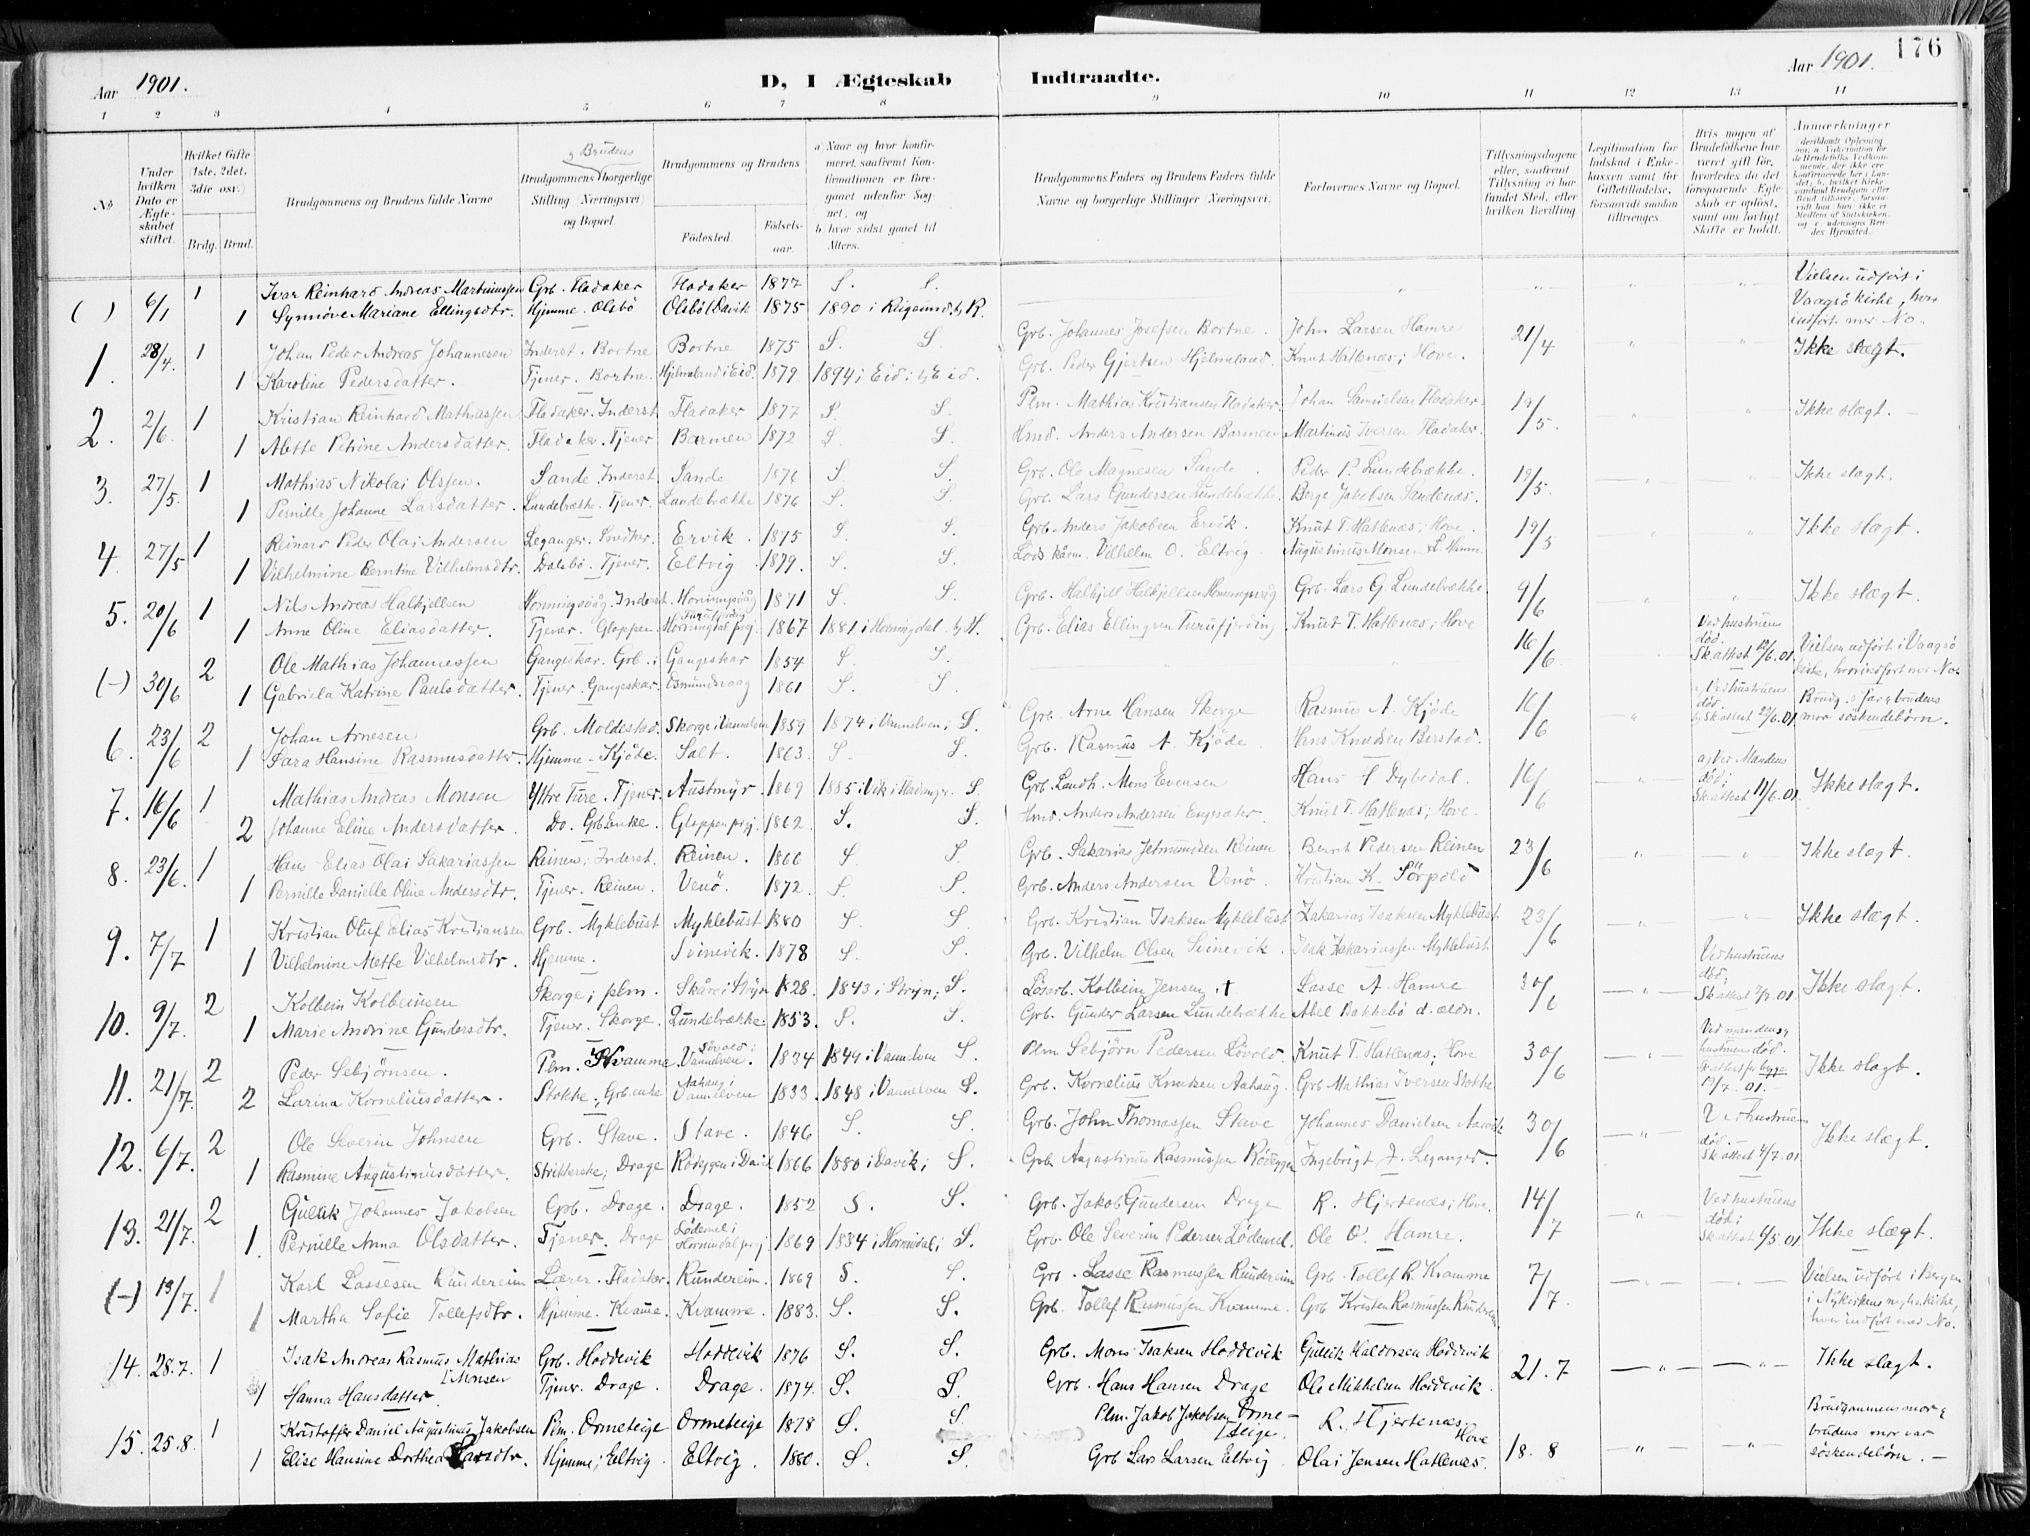 Aar 1901. D, I Ægteskab Indtraadte. Aar 1901. 176
1 2 3 4 5 6 7 8 9 10 11 12 13 14
No
Under hvilken Dato er Ægteskabet stiftet.
Hvilket Gifte (1ste, 2det, 3die osv.)
Brdg. Brud.
Brudgommens og Brudens fulde Navne
Brudgommens og Brudens borgerlige Stilling Næringsvei og Bopæl.
Brudgommens og Brudens
Fødested. Fødselsaar.
a Naar og hvor konfirmeret, saafremt Konfirmationen er foregaaet udenfor Sognet, og
b hvor sidst gaaet til Alters.
Brudgommens Faders og Brudens Faders fulde Navne og borgerlige Stillinger Næringsvei.
Forlovernes Navne og Bopæl.
Tillysningsdagene eller, saafremt Tillysning ei har fundet Sted, efter hvilken Bevilling
Legitimation for Indskud i Enkekassen samt for Giftetilladelse, forsaavidt saadan tiltrænges.
Hvis nogen af Brudefolkene har været gift før, hvorledes da det foregaaende Ægteskab er opløst, samt om lovligt Skifte er holdt.
Anmerkninger
( ) 6/1 1 Ivar Reinhard Andreas Martinussen Grb. Fladaker Fladaker 1877 S. S. Vielsen udført i
1 Synnöve Mariane Ellingsdtr. Hjemme. Olsbö Olsböl Davik 1875 1890 i Rugsund. b, R. Vaagsö kirke, hvor indført mer No.
1. 28/4 1 Johan Peder Andreas Johannesen Inderst. Bortne Bortne 1875 S. S. Grb. Johannes Josefsen Bortne. John Larsen Hamre 21/4 Ikke slægt.
1 Karoline Pedersdatter. Tjener. Bortne. Hjelmeland i Eid. 1879. 1894 i Eid; b, Eid. Grb. Peder Gjertsen Hjelmeland. Knut Hatlenæs; Hove.
2. 2/6 1 Kristian Reinhard Mathiassen Fladaker. Inderst Fladaker 1877 S. S. Plm. Mathias Kristiansen Fladaker. Johan Samuelsen Fladaker 19/5. Ikke slægt.
1 Mette Petrine Andersdatter. Fladaker. Tjener Barmen 1872 S. S. Hmd. Anders Andersen Barmen Martinus Iversen Fladaker.
3. 27/5. 1 Mathias Nikolai Olssen. Sande. Inderst. Sande 1876 S. S. Grb. Ole Magnesen Sande. Peder P. Lundebrække. 19/5. Ikke slagt.
1 Pernille Johanne Larsdatter. Lundebrække. Tjener. Lundebrække 1876 S. S. Grb. Lars Gundersen Lundebrække. Berge Jakobsen Sandenæs.
4. 27/5 1 Reinard Peder Olai Andersen Leganger. Snidker. Ervik. 1875 S. S. Grb. Anders Jakobsen Ervik. Knut T. Hatlenæs; Hove. 19/5 Ikke slagt.
1 Vilhelmine Berntine Vilhelmsdtr. Dalsbö. Tjener. Eltvig. 1879. S. S. Vilhelm O. Eltvig. Augustinus Monsen
5. 20/6 1 Nils Andreas Halkjellsen Honningsvåg. Inderst. Honningsvåg 1871 S. S. Grb. Halkjell Halkjellsen Honningsvåg Grb. Lars G. Lundebrække. 9/6 Ikke slægt.
1 Anne Oline Eliasdatter. Tjener. Gloppen. Horningdal prgj. 1867 1881 i Horningdal. b, H. Grb. Elias Ellingsen Turufjerding Knut T. Hatlenæs; Hove
(-) 30/6 2 Ole Mathias Johannessen Gangeskar. Grb. i Gangeskar 1854 S. S. 16/6. Ved hustruens död. Skattest 12/6.01 Vielsen udført i Vaagsö
1 Gabriela Katrine Paulsdatter. Tjener. Gangeskar. Osmundsvaag 1861 S. S. kirke, hvor indført mer No.
6. 23/6 2 Johan Arnesen Grb. Moldestad. Skorge i Vannelven 1859 1874 i Vannelven; S. Grb. Arne Hansen Skorge Rasmus A. Kjöde 16/6 a, Ved hustruens död b, Skattest 22/6.01. Brudg. s. far og brudens
1 Sara Hansine Rasmusdatter. Hjemme - Kjöde. Salt. 1863. S. S. Grb. Rasmus A. Kjöde. Hans Knudsen Berstad. mor söskendebørn.
7. 16/6 1 Mathias Andreas Monsen Yttre Ture. Tjener. Austmyr. 1869 1885 i Vik i Hadanger. S. Grb. Landh. Mons Evensen Hans A Dybedal. 16/6 a, Ved Mandens død; Skattest 11/6.01. Ikke slagt.
2 Johanne Eline Andersdatter. Do. Grb. Enke. Gloppen prgj. 1862. S. S. Hmd. Anders Andersen Engesæter. Knut T. Hatlenæs; Hove.
8. 23/6. 1 Hans Elias Olai Sakariassen Reinen; Inderst. Reinen. 1866 S. S. Grb. Sakarias Jetmundsen Reinen Bernt Pedersen Reinen 23/6 Ikke slægt.
1 Pernille Danielle Oline Andersdtr. Tjener. Reinen. Venö. 1872. S. S. Grb. Anders Andersen Venö. Kristian K. Sörpold
9. 7/7 1 Kristian Oluf Elias Kristiansen Grb. Myklebust Myklebust 1880 S. S. Grb. Kristian Isaksen Myklebust Zakarias Isaksen Myklebust 23/6 Ikke slægt.
1 Vilhelmine Mette Vilhelmsdtr. Hjemme. Svinevik. 1878 S. S. Grb. Vilhelm Olsen Svinevik. Isak Zakariassen Myklebust
10. 9/7. 2 Kolbein Kolbeinsen Skorge; plm. Skåre i Stryn 1828. 1843 i Stryn; S. Lösarb. Kolbein Jensen. † Lasse A. Hamre 30/6 Ved hustruens død. Skattest 2/7.01. Ikke slagt.
1 Marie Andrine Gundersdtr. Tjener. Skorge. Lundebrække. 1853. S. S. Grb. Gunder Larsen Lundebrække Abel Bakkebö d. ældn.
11. 21/7. 2 Peder Sebjörnsen. Plm. Kvamme Lövold i Vannelven. 1834 1849 i Vannelven S. Plm Sebjörn Pedersen Lövold. Knut T. Hatlenæs; Hove 30/6 Ved mandens og hustruens død. Skattest for begge 13/7.01. Ikke slagt.
2 Larina Korneliusdatter. Stokke; Grb. enke Aahaug i Vannelven 1833. 1848 i Vannelven S. Grb. Kornelius Knutsen Aahaug. Grb Mathias Iversen Stokke
12. 6/7. 2 Ole Severin Johnsen Grb. Stave. Stave. 1846 S. S. Grb. John Thomassen Stave Johannes Danielsen Aarvik 30/6 Ved hustruens død. Skattest 4/7.01. Ikke slægt.
1 Rasmine Augustinusdatter. Strikkerske; Drage Rödeggen i Davik 1866 1880 i Davik; S. Grb. Augustinus Rasmussen Rödeggen Ingebrigt J. Leganger.
13. 21/7. 2 Gullik Johannes Jakobsen Grb. Drage. Drage. 1852 S. S. Grb. Jakob Gundersen Drage R. Hjertenæs; Hove. 14/7 Ved hustruens død; Skattest 6/5.01 Ikke slægt.
1. Pernille Anna Olsdatter. Tjener. Drage Lödemel i Hornindal prgj. 1869 1884 i Hornindal; S. Grb. Ole Severin Pedersen Lödemel. Ole O. Hamre.
(-) 13/7. 1 Karl Lassesen Rundereim Lærer. Fladaker. Rundereim. 1869 S. S. Grb. Lasse Rasmussen Rundereim Grb. Tollef R. Kvamme 7/7. Vielsen udført i Bergen
1 Martha Sofie Tollefsdtr. Hjemme. Kvame. Kvamme. 1883. S. S. Grb. Tollef Rasmussen Kvamme. Grb Kristen Rasmussen Runderem i Nykirkens hvor indført med No.
14. 28.7. 1 Isak Andreas Rasmus Mathias Monsen Grb. Hoddevik Hoddevik 1876 S. S. Grb. Mons Isaksen Hoddevik Gullik Haldorsen Hoddevik 21.7 Ikke slagt.
1 Hanna Hansdatter. Tjener. Drage. Drage. 1874. S. S. Grb. Hans Hansen Drage Ole Mikkelsen Hoddevik.
15. 25.8. 1 Kristoffer Daniel Augustinus Jakobsen Plm. Ormeteige Ormeteige 1878 S. S. Plm. Jakob Jakobsen Ormeteige R. Hjertenæs. Hove 18.8 Brudgommens mor og
1 Elise Hansine Dorthea Larsdtr. Hjemme; Eltvig. Eltvig. 1880. S. S. Grb Lars Larsen Eltvig. Olai Jensen Hatlenæs. brudens mor var söskendebørn.